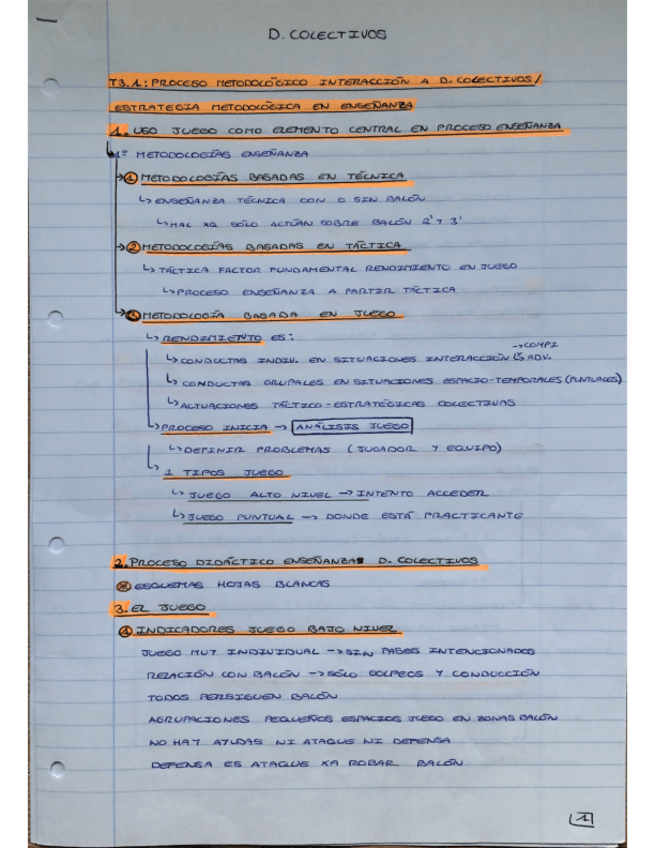 D. COLECTIVOS
T3.1: PROCESO METODOLÓGICO INTERACCIÓN A D. COLECTIVOS/
ESTRATEGIA METODOLÓGICA EN ENSEÑANZA
1. USO JUEGO COMO ELEMENTO CENTRAL EN PROCESO ENSEÑANZA
1º METODOLOGÍAS ENSEÑANZA
→① METODOLOGÍAS BASADAS EN TÉCNICA
↳ ENSEÑANZA TÉCNICA CON O SIN BALÓN
↳ MAL XQ SÓLO ACTÚAN SOBRE BALÓN 2' Y 3'
→② METODOLOGÍAS BASADAS EN TÁCTICA
↳ TÁCTICA FACTOR FUNDAMENTAL RENDIMIENTO EN JUEGO
↳ PROCESO ENSEÑANZA A PARTIR TÁCTICA
METODOLOGÍA BASADA EN JUEGO
↳ RENDIMIENTO ES:
→COMPI
↳ CONDUCTAS INDIV. EN SITUACIONES INTERACCIÓN ↳ ADV.
↳ CONDUCTAS GRUPALES EN SITUACIONES ESPACIO-TEMPORALES (PUNTUALES)
↳ ACTUACIONES TÁCTICO-ESTRATÉGICAS COLECTIVAS
↳ PROCESO INICIA → ANÁLISIS JUEGO
↳ DEFINIR PROBLEMAS (JUGADOR Y EQUIPO)
↳ 2 TIPOS JUEGO
↳ JUEGO ALTO NIVEL → INTENTO ACCEDER
↳ JUEGO PUNTUAL → DONDE ESTÁ PRACTICANTE
2. PROCESO DIDÁCTICO ENSEÑANZAS D. COLECTIVOS
ESQUEMAS HOJAS BLANCAS
3. EL JUEGO
① INDICADORES JUEGO BAJO NIVEL
JUEGO MUY INDIVIDUAL → SIN PASES INTENCIONADOS
RELACIÓN CON BALÓN → SÓLO GOLPEOS Y CONDUCCIÓN
TODOS PERSIGUEN BALÓN
AGRUPACIONES PEQUEÑOS ESPACIOS JUEGO EN ZONAS BALÓN
NO HAY AYUDAS NI ATAQUE NI DEFENSA
DEFENSA ES ATAQUE XA ROBAR BALÓN
1